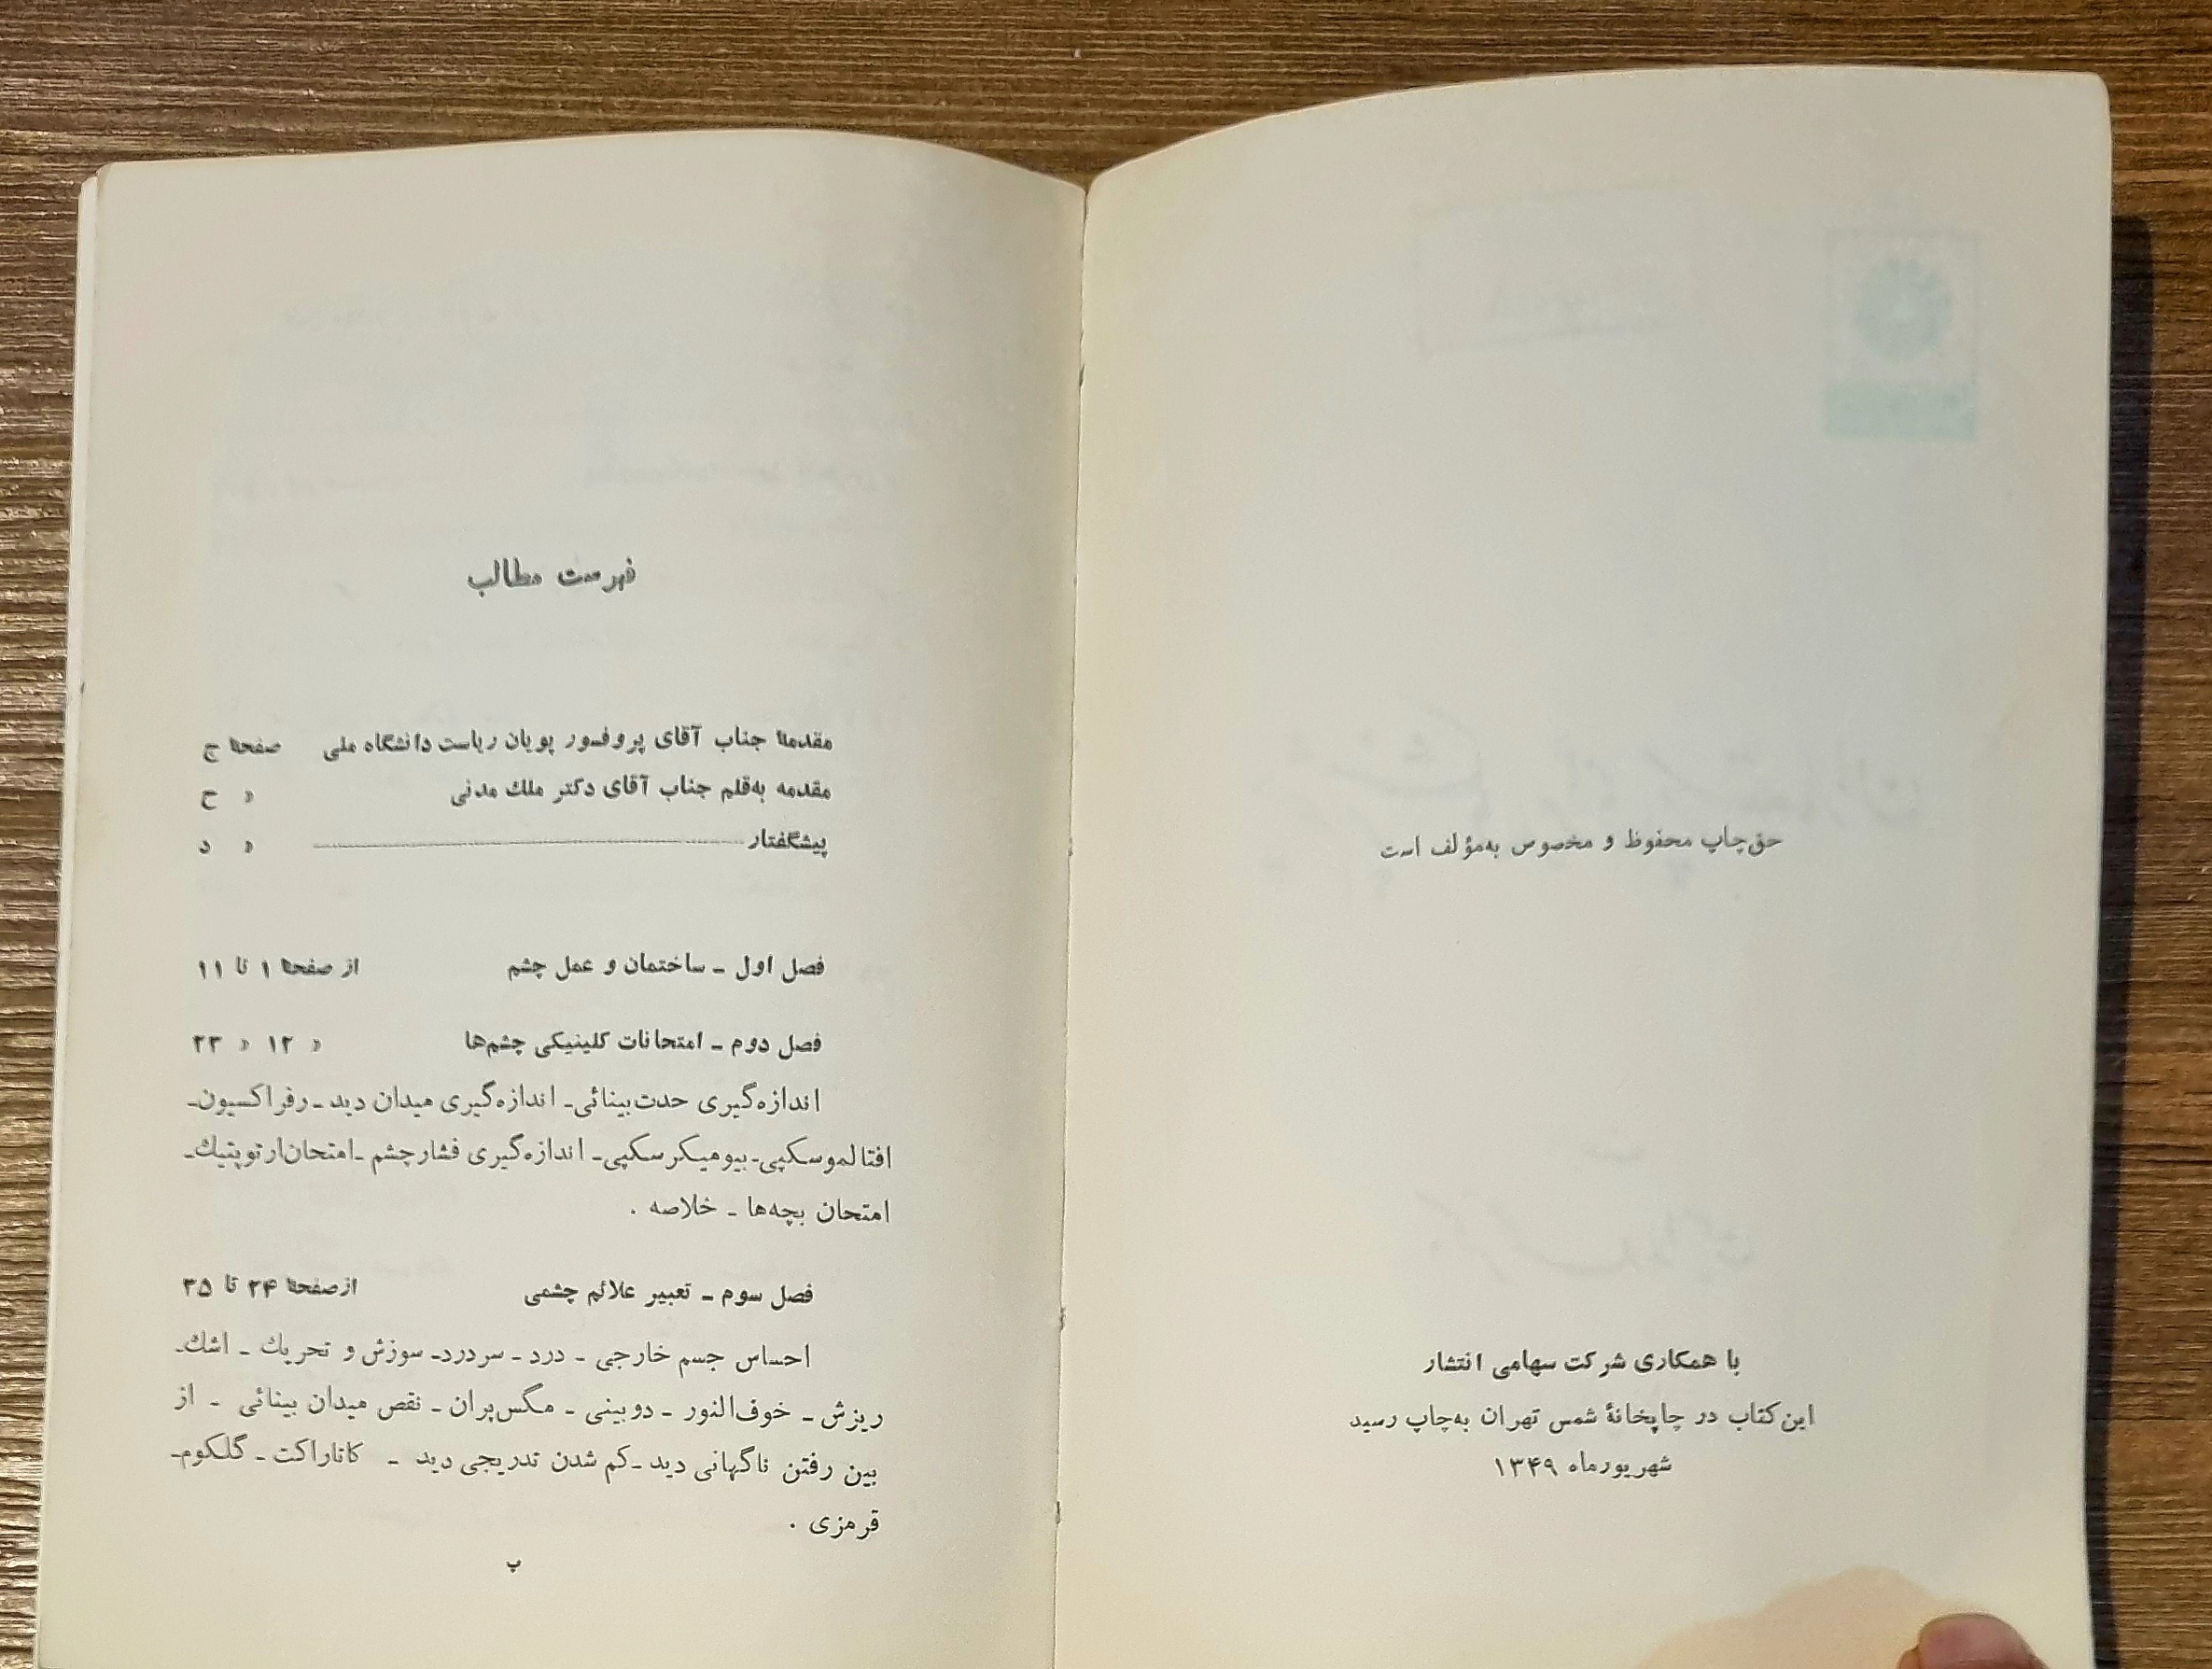 حق‌چاپ محفوظ و مخصوص به‌مؤلف است
با همکاری شرکت سهامی انتشار
این‌کتاب در چاپخانهٔ شمس تهران به‌چاپ رسید
شهریورماه ۱۳۴۹
فهرست مطالب
مقدمهٔ جناب آقای پروفسور پویان ریاست دانشگاه ملی صفحهٔ ج
مقدمه به‌قلم جناب آقای دکتر ملك مدنی » ح
پیشگفتار » د
فصل اول ـ ساختمان و عمل چشم از صفحهٔ ۱ تا ۱۱
فصل دوم ـ امتحانات کلینیکی چشم‌ها » ۱۲ » ۲۳
اندازه‌گیری حدت‌بینائی ـ اندازه‌گیری میدان دید ـ رفراکسیون ـ
افتالموسکپی ـ بیومیکرسکپی ـ اندازه‌گیری فشارچشم ـ امتحان‌ارتوپتیك ـ
امتحان بچه‌ها ـ خلاصه .
فصل سوم ـ تعبیر علائم چشمی از صفحهٔ ۲۴ تا ۳۵
احساس جسم خارجی ـ درد ـ سردرد ـ سوزش و تحریك ـ اشك ـ
ریزش ـ خوف‌النور ـ دوبینی ـ مگس‌پران ـ نقص میدان بینائی ـ از
بین رفتن ناگهانی دید ـ کم شدن تدریجی دید ـ کاتاراکت ـ گلکوم ـ
قرمزی .
پ